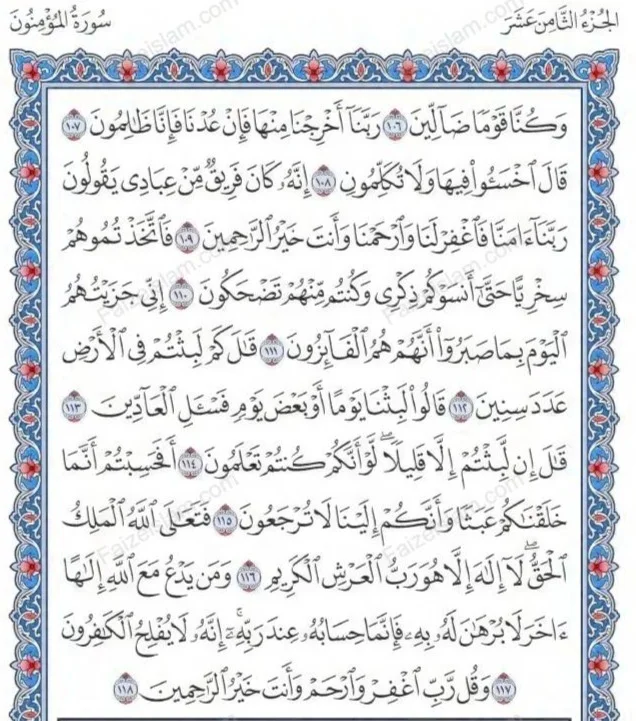 الجُزْءُ الثَّامِنَ عَشَرَ
سُورَةُ المُؤْمِنُونَ
وَكُنَّا قَوْمًا ضَآلِّينَ ١٠٦ رَبَّنَآ أَخْرِجْنَا مِنْهَا فَإِنْ عُدْنَا فَإِنَّا ظَٰلِمُونَ ١٠٧
قَالَ ٱخْسَـُٔوا۟ فِيهَا وَلَا تُكَلِّمُونِ ١٠٨ إِنَّهُۥ كَانَ فَرِيقٌ مِّنْ عِبَادِى يَقُولُونَ
رَبَّنَآ ءَامَنَّا فَٱغْفِرْ لَنَا وَٱرْحَمْنَا وَأَنتَ خَيْرُ ٱلرَّٰحِمِينَ ١٠٩ فَٱتَّخَذْتُمُوهُمْ
سِخْرِيًّا حَتَّىٰٓ أَنسَوْكُمْ ذِكْرِى وَكُنتُم مِّنْهُمْ تَضْحَكُونَ ١١٠ إِنِّى جَزَيْتُهُمُ
ٱلْيَوْمَ بِمَا صَبَرُوٓا۟ أَنَّهُمْ هُمُ ٱلْفَآئِزُونَ ١١١ قَٰلَ كَمْ لَبِثْتُمْ فِى ٱلْأَرْضِ
عَدَدَ سِنِينَ ١١٢ قَالُوا۟ لَبِثْنَا يَوْمًا أَوْ بَعْضَ يَوْمٍ فَسْـَٔلِ ٱلْعَآدِّينَ ١١٣
قَٰلَ إِن لَّبِثْتُمْ إِلَّا قَلِيلًا ۖ لَّوْ أَنَّكُمْ كُنتُمْ تَعْلَمُونَ ١١٤ أَفَحَسِبْتُمْ أَنَّمَا
خَلَقْنَٰكُمْ عَبَثًا وَأَنَّكُمْ إِلَيْنَا لَا تُرْجَعُونَ ١١٥ فَتَعَٰلَى ٱللَّهُ ٱلْمَلِكُ
ٱلْحَقُّ ۖ لَآ إِلَٰهَ إِلَّا هُوَ رَبُّ ٱلْعَرْشِ ٱلْكَرِيمِ ١١٦ وَمَن يَدْعُ مَعَ ٱللَّهِ إِلَٰهًا
ءَاخَرَ لَا بُرْهَٰنَ لَهُۥ بِهِۦ فَإِنَّمَا حِسَابُهُۥ عِندَ رَبِّهِۦٓ ۚ إِنَّهُۥ لَا يُفْلِحُ ٱلْكَٰفِرُونَ
١١٧ وَقُل رَّبِّ ٱغْفِرْ وَٱرْحَمْ وَأَنتَ خَيْرُ ٱلرَّٰحِمِينَ ١١٨
Faizeislam.com